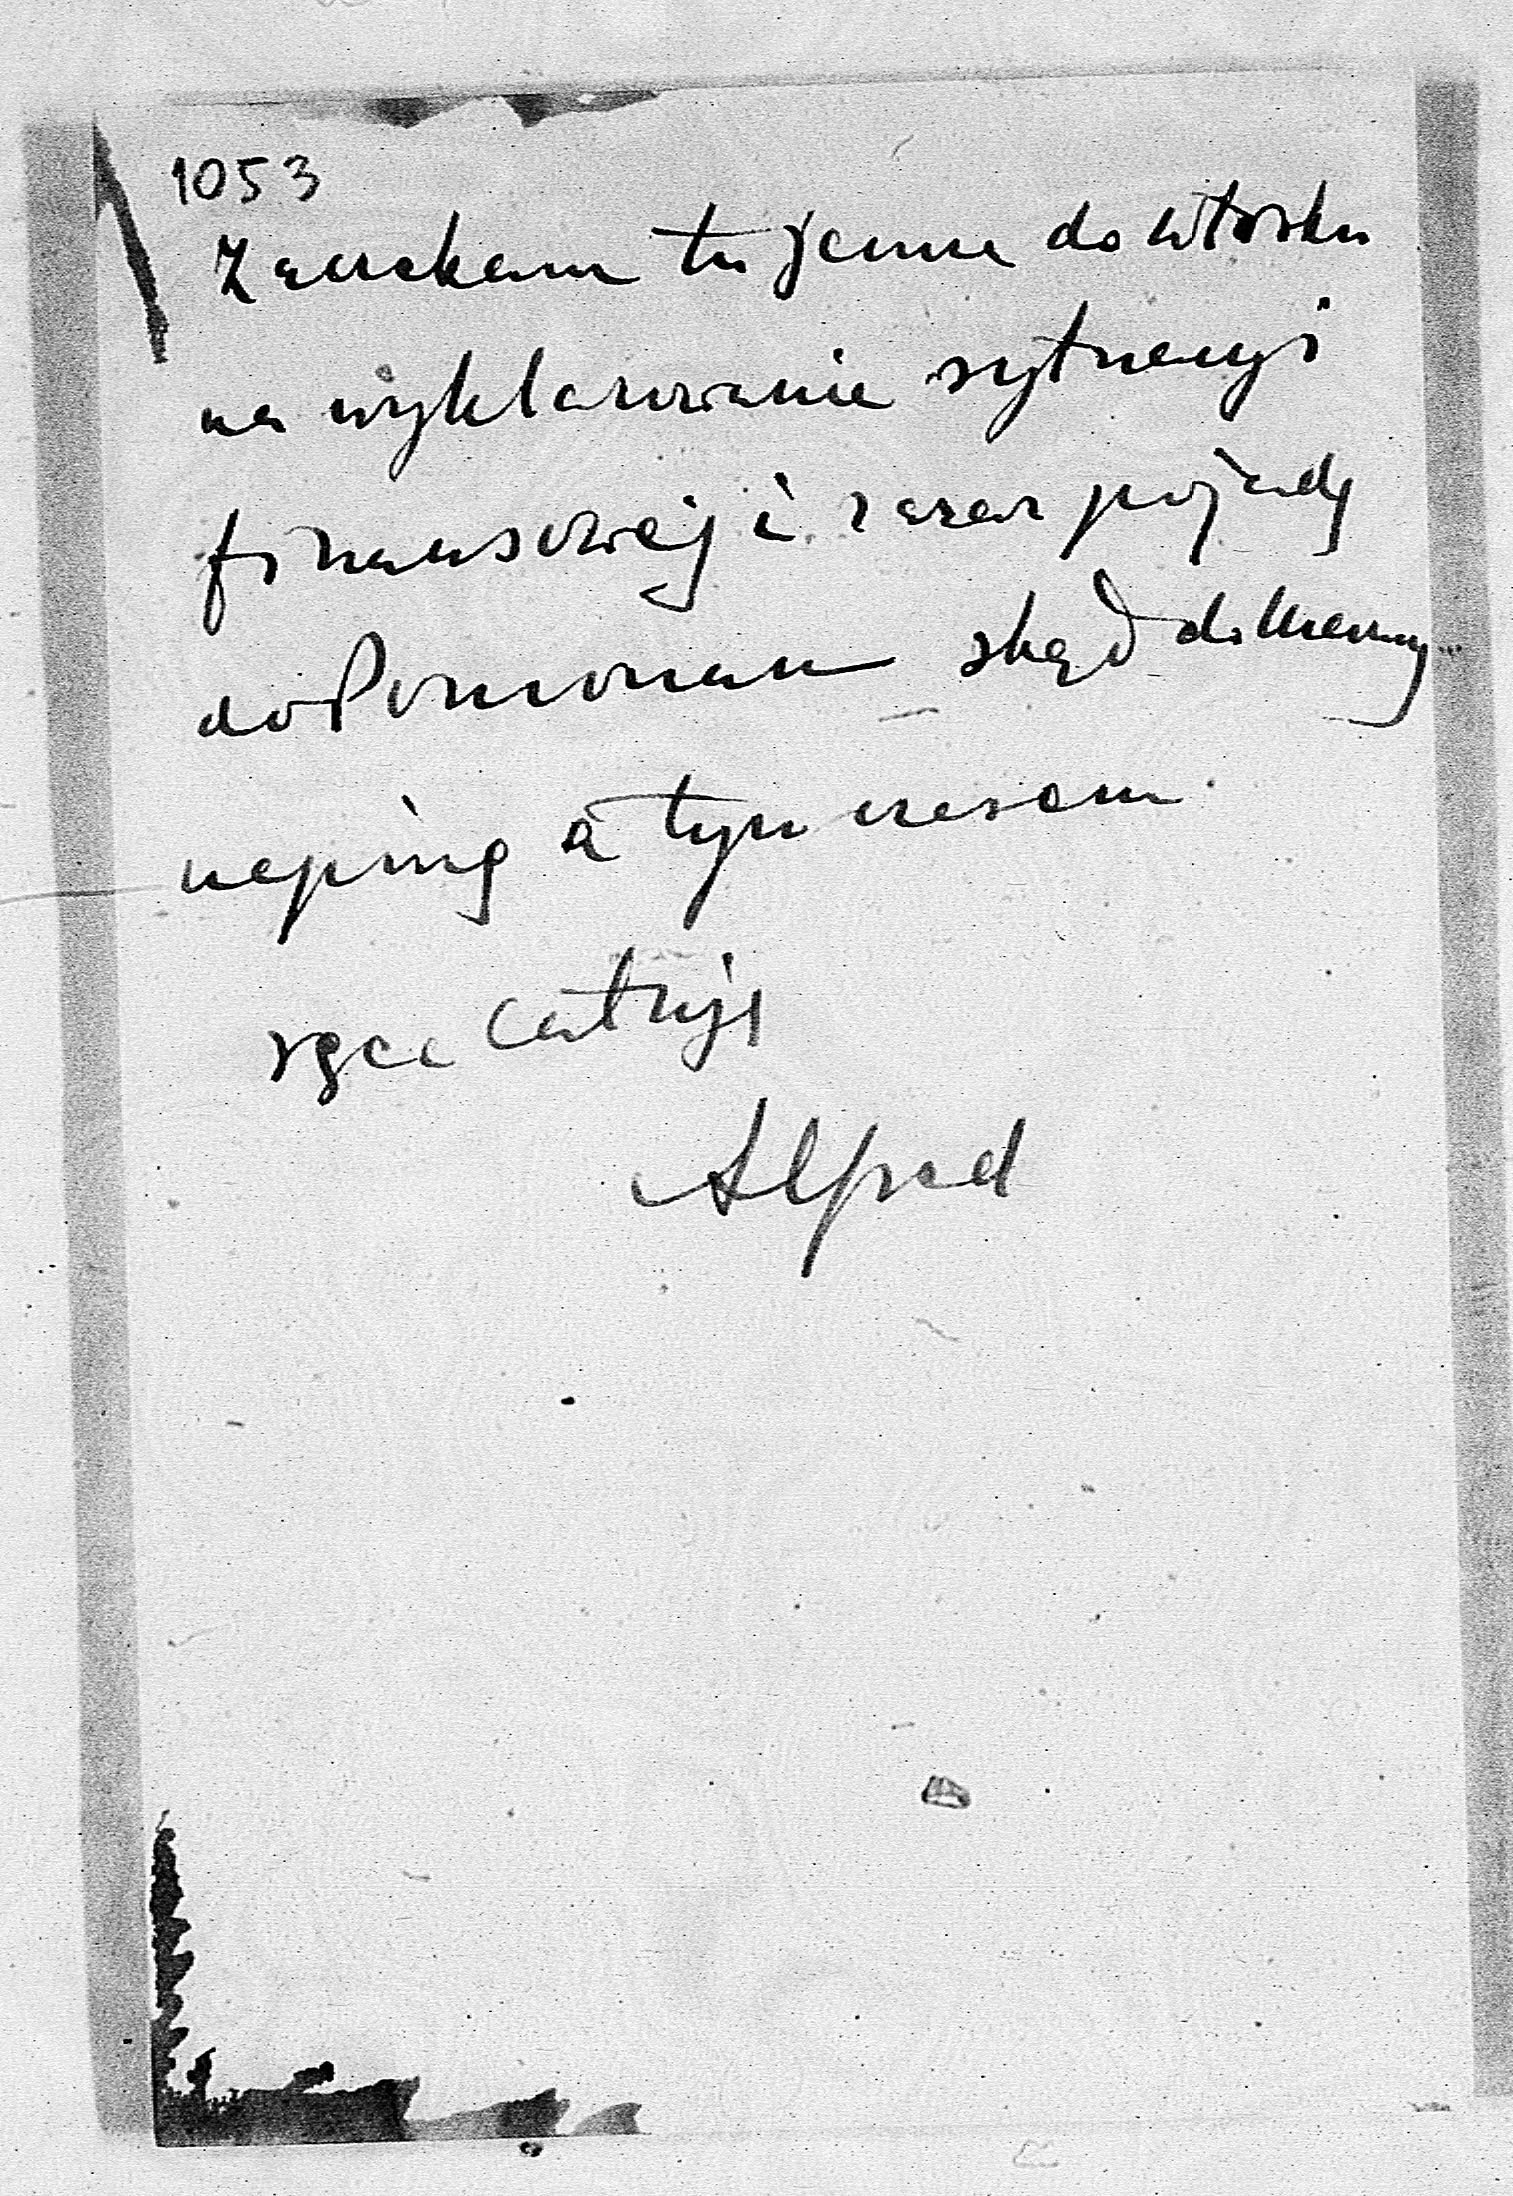 1053
Zaczekam tu jeszcze do wtorku
na wyklarowanie sytuacyi
finansowej i zaraz pojadę
do Poznania skąd do Mamy
napiszę a tym czasem
rące całuję
Alfred